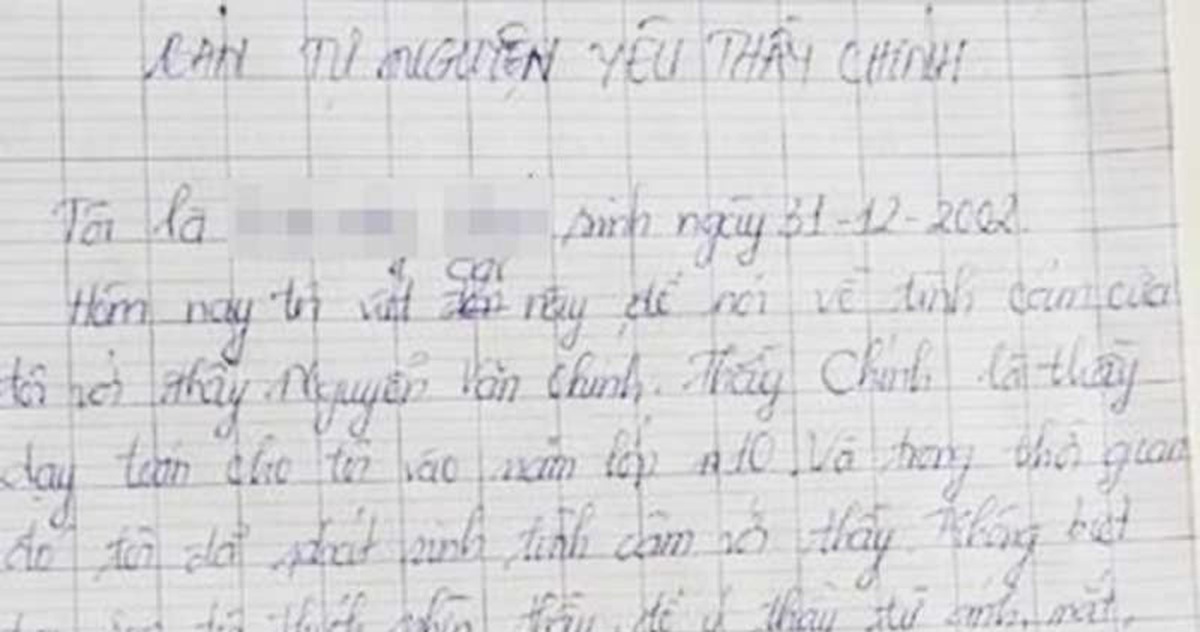 CAM TỰ NGUYỆN YÊU THẦY CHINH
Tôi là sinh ngày 31-12-2002.
Hôm nay tôi viết cái này để nói về tình cảm của
tôi với thầy Nguyễn Văn Chinh. Thầy Chinh là thầy
dạy toán cho tôi vào năm lớp 10. Và trong thời gian
đó tôi đã phát sinh tình cảm với thầy. Không biết
tôi thầy, để ý thầy từ ánh mắt,